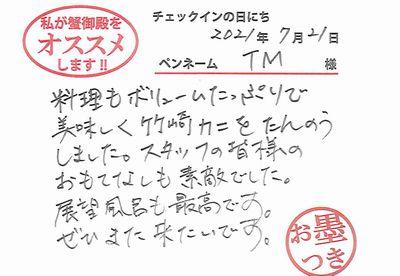 私が蟹御殿を
オススメ
します!!
チェックインの日にち
2021年 7月21日
ペンネーム TM 様
料理もボリュームたっぷりで
美味しく竹崎カニをたんのう
しました。スタッフの皆様の
おもてなしも素敵でした。
展望風呂も最高です。
ぜひまた来たいです。
お墨
つき